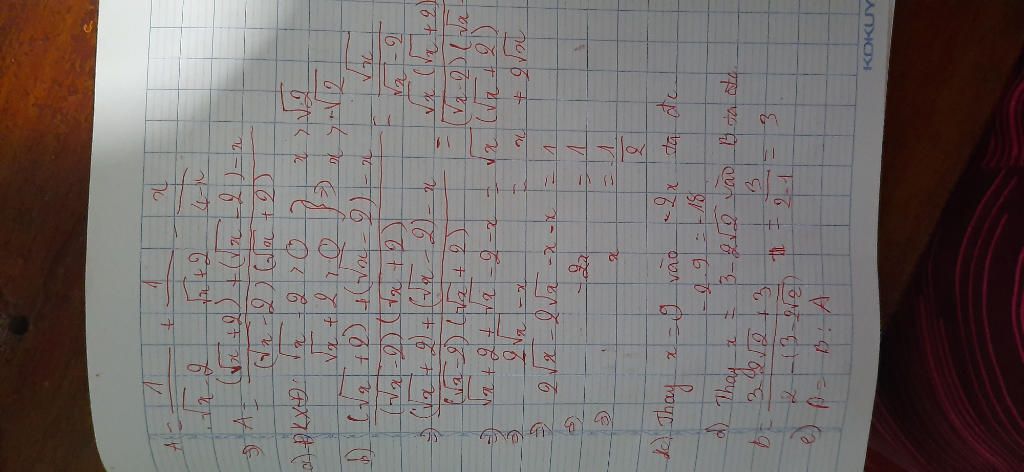 A = 1/(√x-2) + 1/(√x+2) - x/(4-x)
⇒ A = ((√x+2) + (√x-2) - x)/((√x-2)(√x+2))
a) ĐKXĐ: √x - 2 > 0 } ⇒ x > √2
√x + 2 > 0 x > -√2
b) ((√x+2) + (√x-2) - x)/((√x-2)(√x+2)) = √x/(√x-2)
⇒ ((√x+2) + (√x-2) - x)/((√x-2)(√x+2)) = √x(√x+2)/((√x-2)(√x
⇒ √x+2+√x-2-x = √x(√x+2)
⇒ 2√x - x = x + 2√x
⇒ 2√x - 2√x - x - x = 1
⇒ -2x = 1
⇒ x = 1/2
c) Thay x = 9 vào -2x ta đc
-2.9 = -18
d) Thay x = 3-2√2 vào B ta đc
B = (3-2√2+3)/(2-(3-2√2)) = 3/(2-1) = 3
e) P = B : A
KOKUY